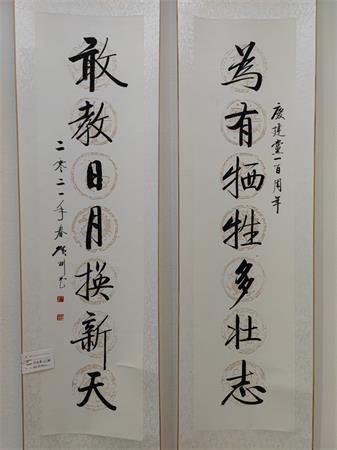 為有牺牲多壮志
慶建黨一百周年
敢教日月换新天
二零二一年春